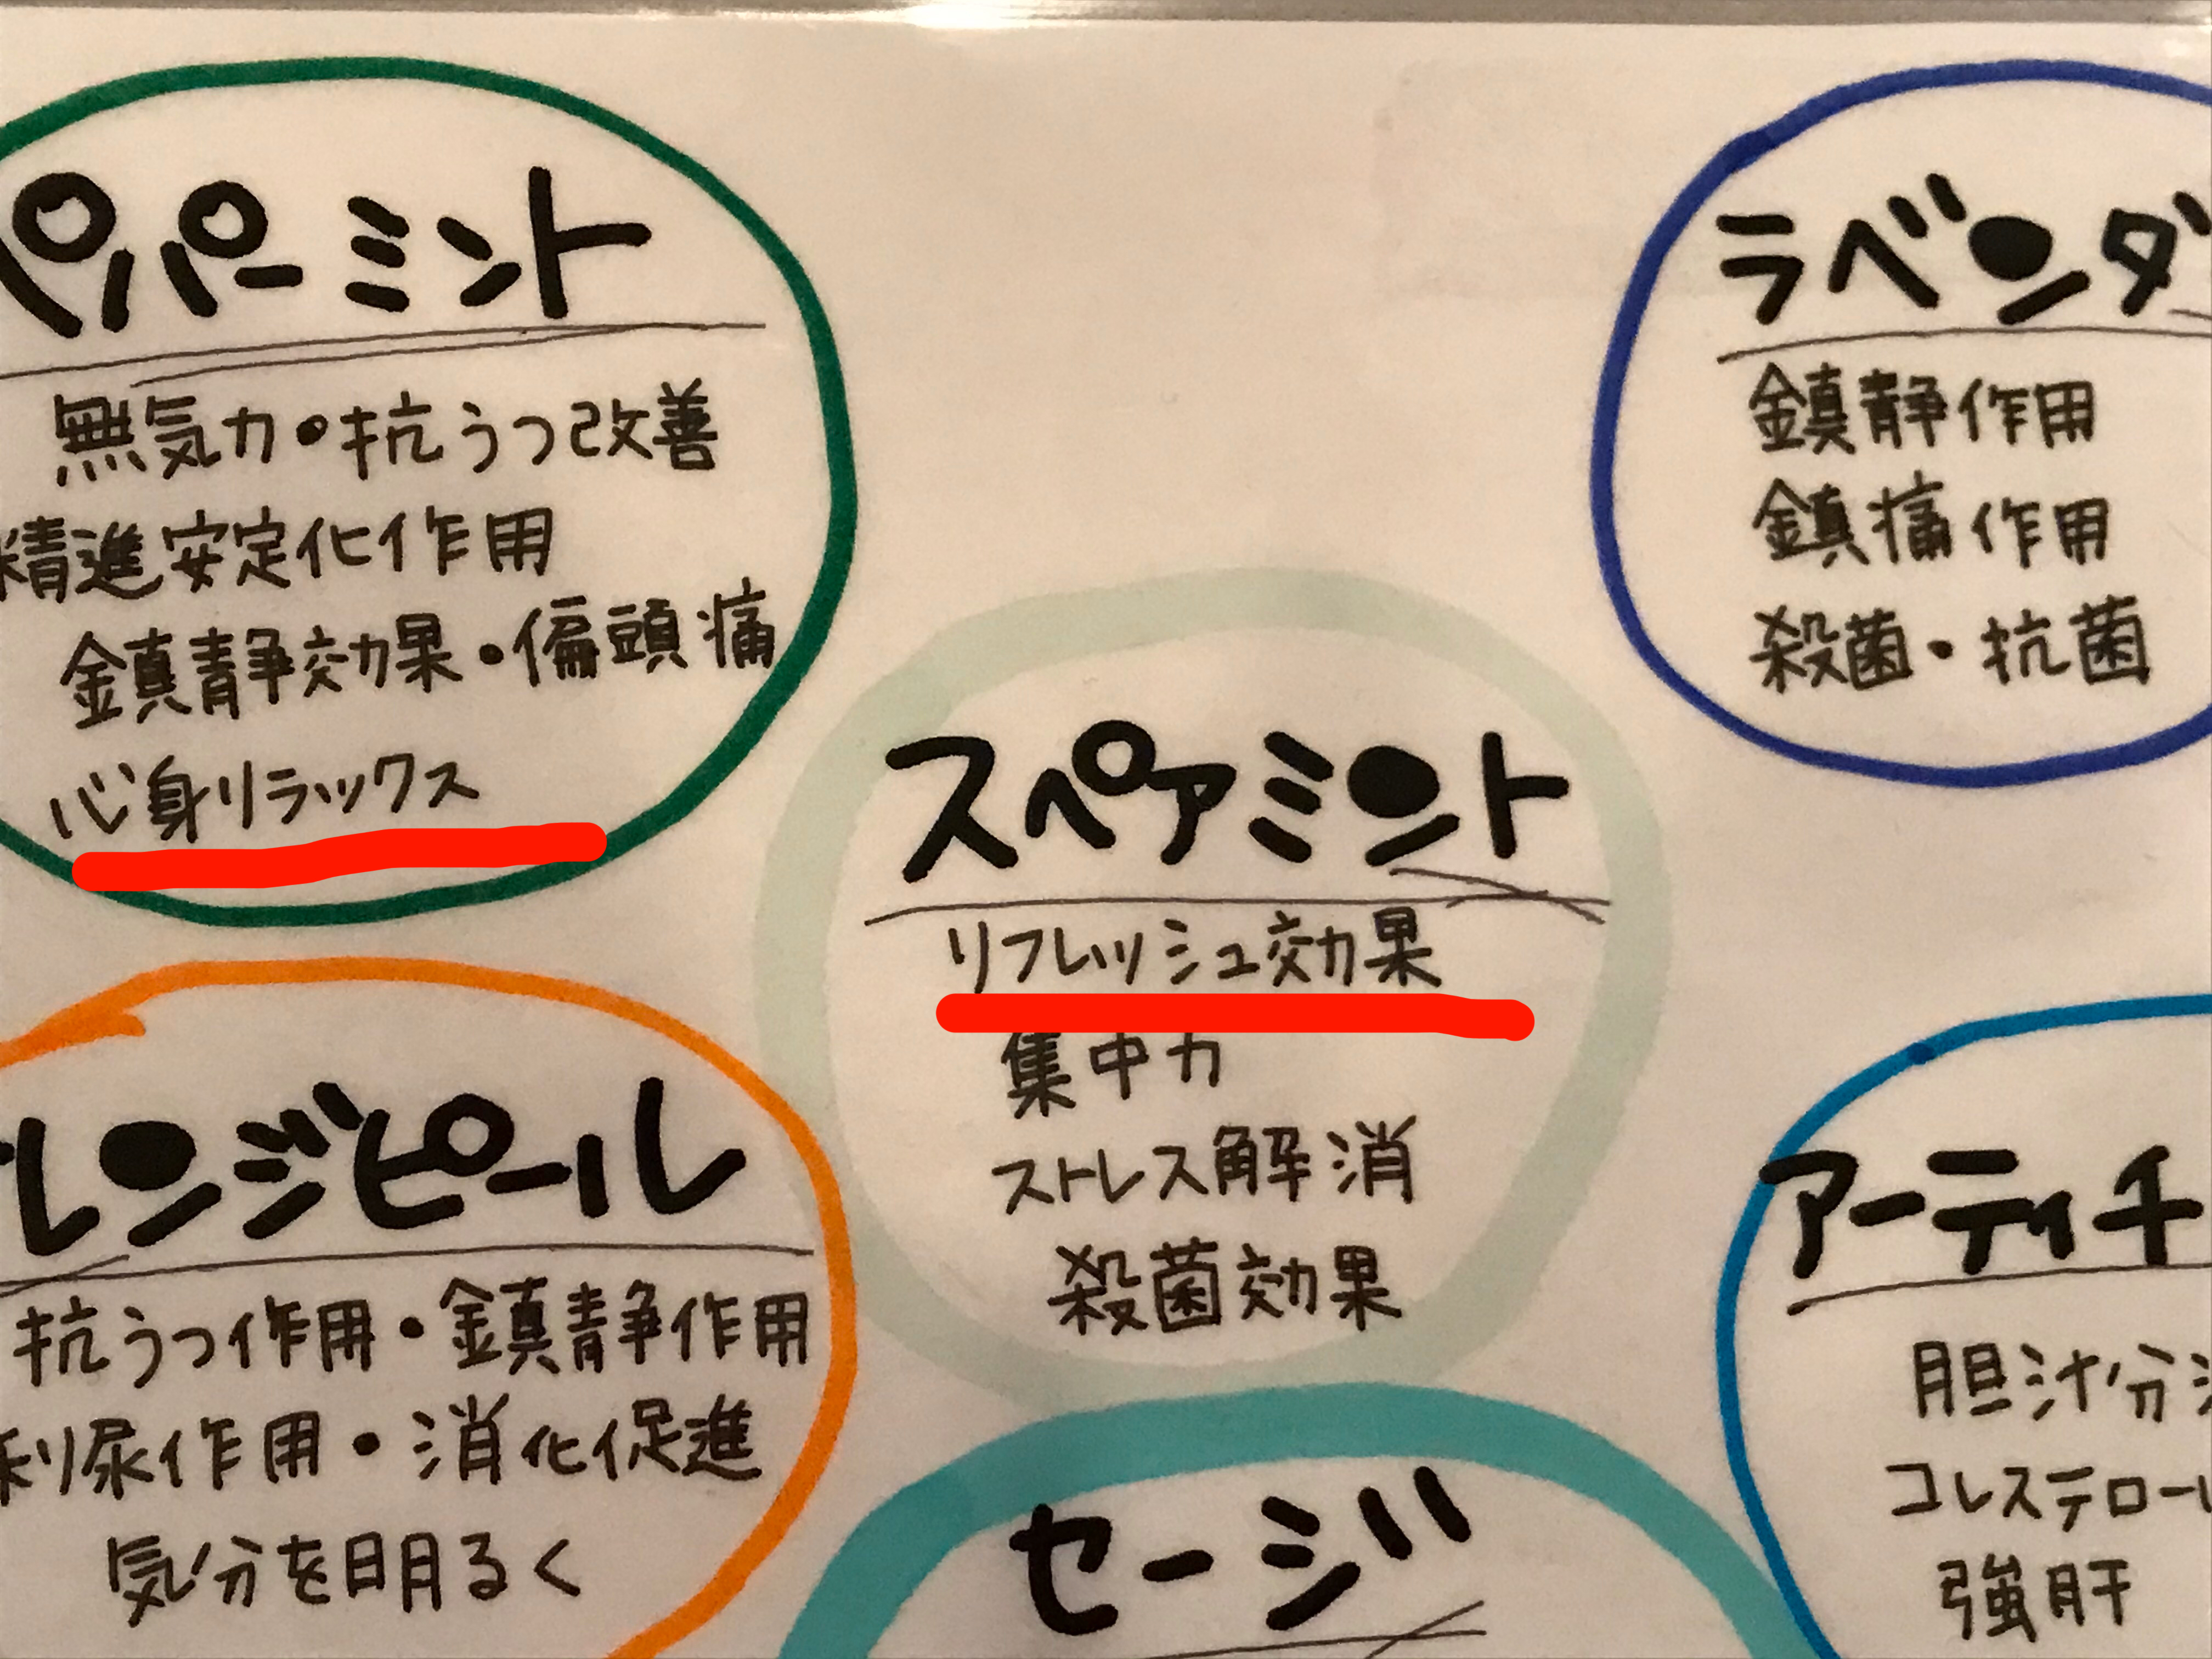 ペパーミント
無気力・抗うつ改善
精進安定化作用
鎮静効果・偏頭痛
心身リラックス
ラベンダ
鎮静作用
鎮痛作用
殺菌・抗菌
スペアミント
リフレッシュ効果
集中力
ストレス解消
殺菌効果
レンジピール
抗うつ作用・鎮静作用
利尿作用・消化促進
気分を明るく
セージ
アーティチ
胆汁分
コレステロール
強肝